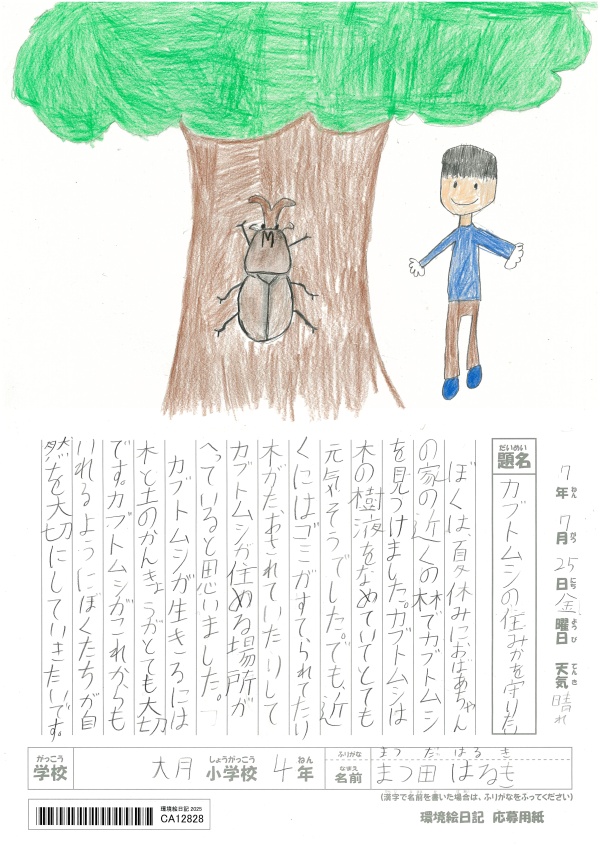 7年 7月 25日 金曜日 天気 晴れ
ねん がつ にち ようび てんき
だいめい
題名
カブトムシの住みかを守りたい
ぼくは、夏休みにおばあちゃん
の家の近くの林でカブトムシ
を見つけました。カブトムシは
木の樹液をなめていてとても
元気そうでした。でも、近
くにはゴミがすてられてたり
木がたおされていたりして
カブトムシが住める場所が
へっていると思いました。
カブトムシが生きるには
木と土のかんきょうがとても大切
です。カブトムシがこれからも
いれるようにぼくたちが自
然を大切にしていきたいです。
がっこう しょうがっこう ねん
学校 大月 小学校 4年
ふりがな まつ だ はる き
なまえ
名前 まつ田 はるき
(漢字で名前を書いた場合は、ふりがなをふってください)
環境絵日記 応募用紙
環境絵日記 2025
CA12828